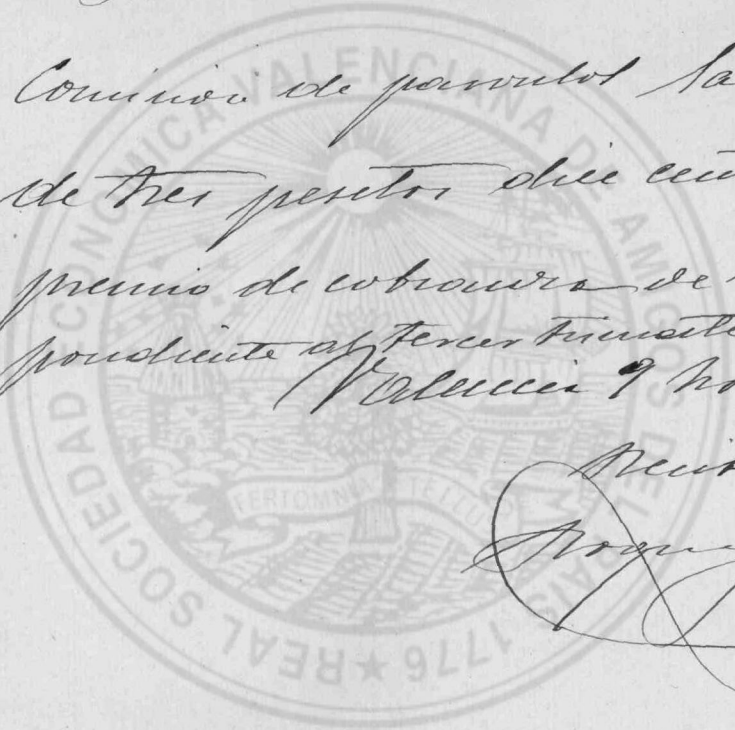 Comision de parvulos la
de tres pesetas diez cen
premio de cobranza de
pondiente al tercer trimestre
Valencia 9 No
REAL SOCIEDAD ECONOMICA VALENCIANA DE AMIGOS DEL PAIS 1776
FERT OMNIA TELLUS